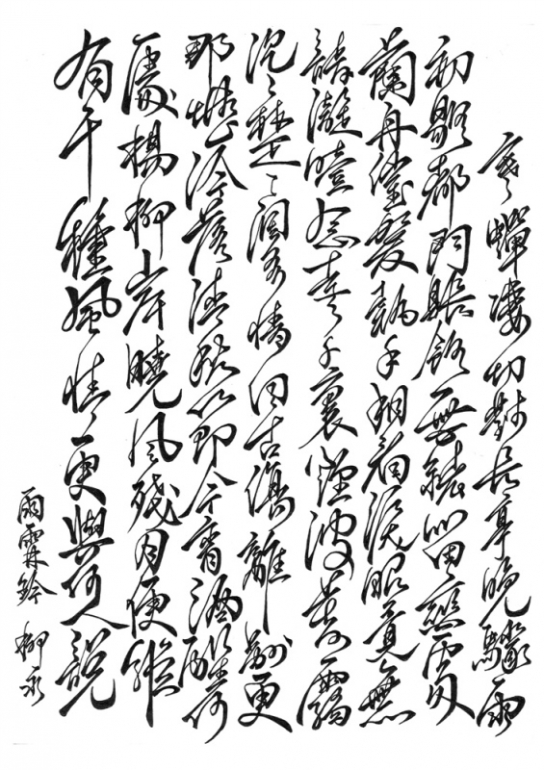 寒蟬淒切對長亭晚驟雨
初歇都門帳飲無緒留戀處
蘭舟催發執手相看淚眼竟無
語凝噎念去去千里煙波暮靄
沉沉楚天闊多情自古傷離別更
那堪冷落清秋節今宵酒醒何
處楊柳岸曉風殘月便縱
有千種風情更與何人說
雨霖鈴 柳永